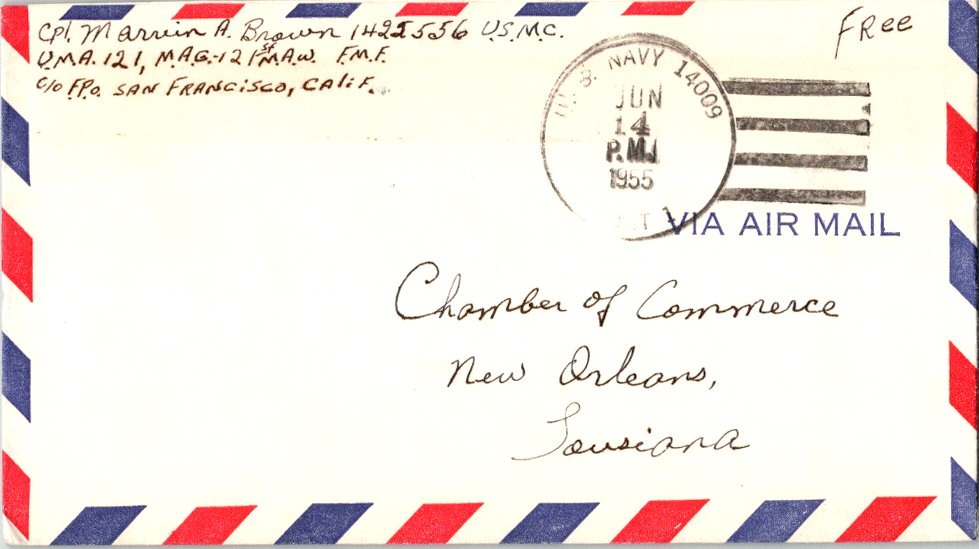 Cpl. Marvin A. Brown 1425556 U.S.M.C.
V.M.A. 121, M.A.G.-12 1st M.A.W. F.M.F.
c/o F.P.O. SAN FRANCISCO, CALIF.
FREE
U. S. NAVY 14009
JUN
14
P.M.
1955
VIA AIR MAIL
Chamber of Commerce
New Orleans,
Lousiana